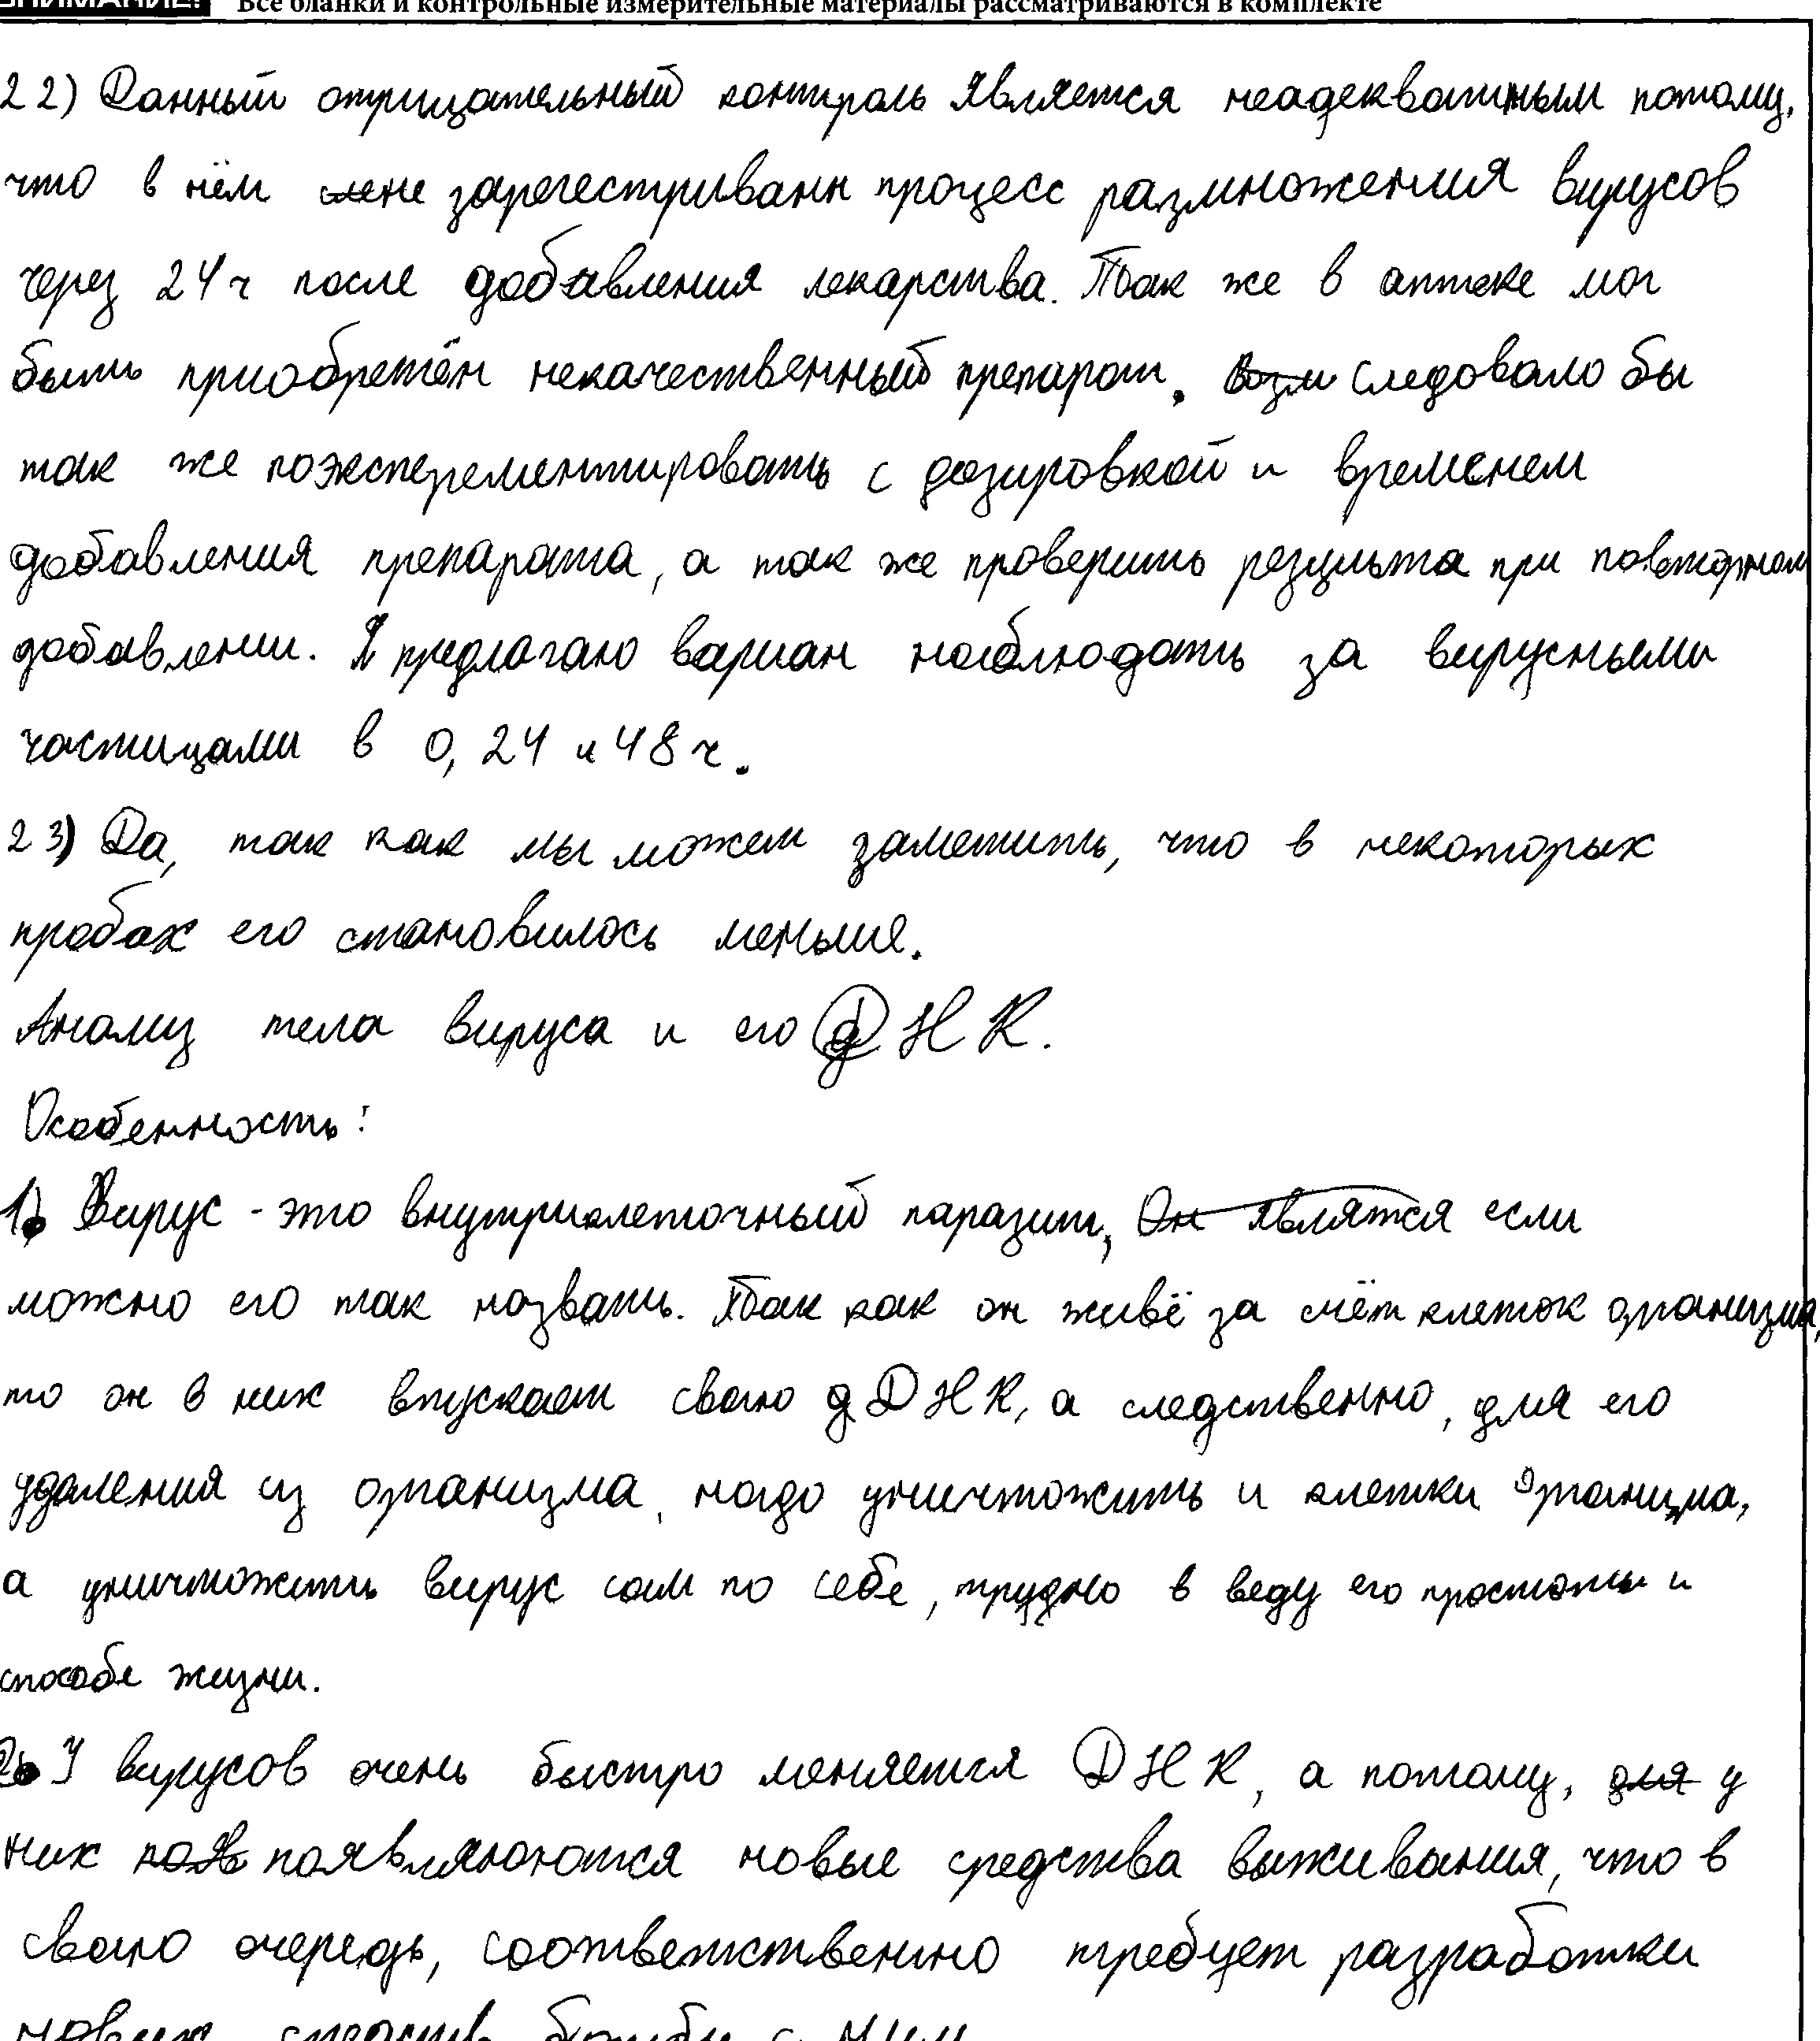 ВНИМАНИЕ! Все бланки и контрольные измерительные материалы рассматриваются в комплекте
22) Данный отрицательный контроль является неадекватным потому,
что в нём не зарегестриванн процесс размножения вирусов
через 24 ч после добавления лекарства. Так же в аптеке мог
быть приобретён некачественный препарат. Следовало бы
так же поэксперементировать с дозировкой и временем
добавления препарата, а так же проверить результа при повторном
добавлении. Я предлагаю вариан наблюдать за вирусными
частицами в 0, 24 и 48 ч.
23) Да, так как мы можем заметить, что в некоторых
пробах его становилось меньше.
Анализ тела вируса и его ДНК.
Особенность:
1. Вирус - это внутриклеточный паразит, если
можно его так назвать. Так как он живё за счёт клеток организма,
то он в них впускает свою дДНК, а следственно, для его
удаления из организма, надо уничтожить и клетки организма,
а уничтожить вирус сам по себе, трудно в веду его простоты и
способе жизни.
2. У вирусов очень быстро меняется ДНК, а потому, у
них появляюются новые средства выживания, что в
свою очередь, соответственно требует разработки
новых средств борьбы с ним